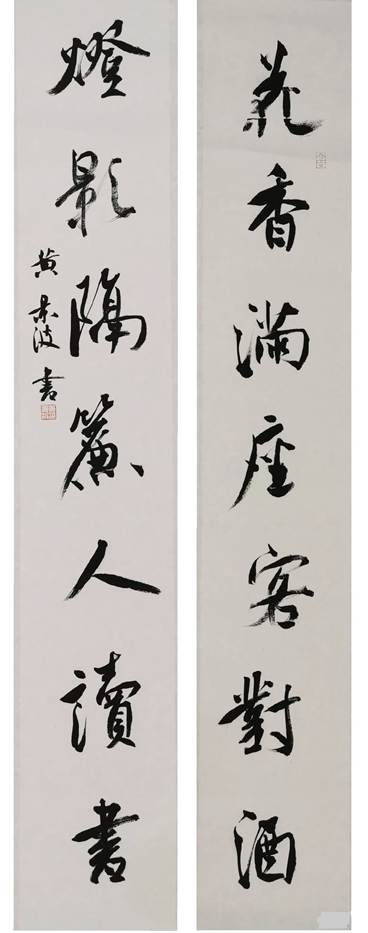 花香滿座客對酒
燈影隔簾人讀書
黄景波書